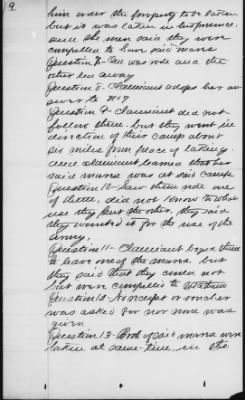 9
him order the property to be taken
but it was taken in his presence.
and the men said they were
compelled to have said mares
Question 7- One was rode and the
other led away
Question 8- Claimant adopts his an-
swer to No 7
Question 9 Claimant did not
follow them. but they went in
direction of their camp about
six miles from place of taking.
and claimant learned that her
said mares was at said camp
Question 10- Saw them ride one
of them, did not know to what
use they put the other, they said
they wanted it for the use of the
Army.
Question 11- Claimant begged them
to leave one of the mares. but
they said that they could not
but were compelled to
Question 12- No receipt or voucher
was asked for nor none was
given
Question 13- Both of said mares were
taken at same time, in the